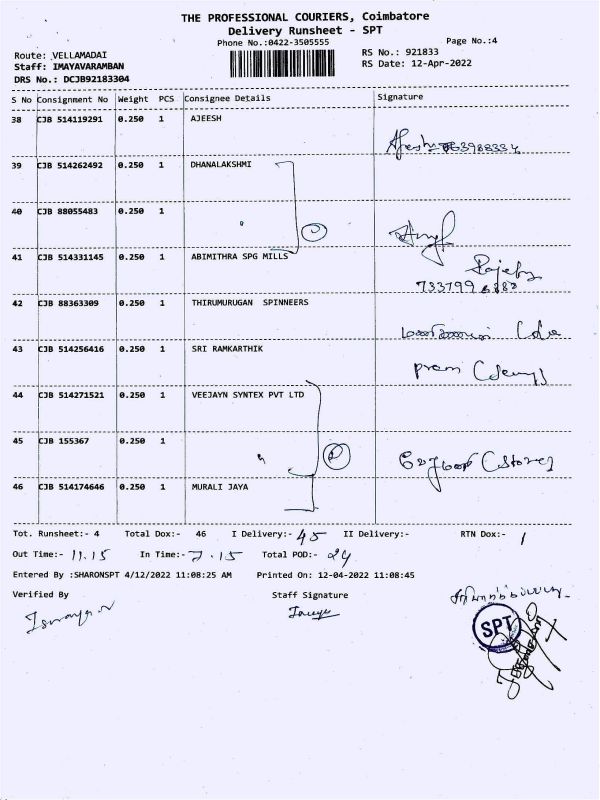 THE PROFESSIONAL COURIERS, Coimbatore
Delivery Runsheet - SPT
Phone No.:0422-3505555
Page No.:4
Route: VELLAMADAI
RS No.: 921833
Staff: IMAYAVARAMBAN
RS Date: 12-Apr-2022
DRS No.: DCJB92183304
S No Consignment No Weight PCS Consignee Details Signature
38 CJB 514119291 0.250 1 AJEESH
39 CJB 514262492 0.250 1 DHANALAKSHMI
40 CJB 88055483 0.250 1
41 CJB 514331145 0.250 1 ABIMITHRA SPG MILLS
42 CJB 88363309 0.250 1 THIRUMURUGAN SPINNEERS
43 CJB 514256416 0.250 1 SRI RAMKARTHIK
prem
44 CJB 514271521 0.250 1 VEEJAYN SYNTEX PVT LTD
45 CJB 155367 0.250 1
46 CJB 514174646 0.250 1 MURALI JAYA
Tot. Runsheet:- 4 Total Dox:- 46 I Delivery:- 45 II Delivery:- RTN Dox:- 1
Out Time:- 11.15 In Time:- 7.15 Total POD:- 24
Entered By :SHARONSPT 4/12/2022 11:08:25 AM Printed On: 12-04-2022 11:08:45
Verified By Staff Signature
SPT